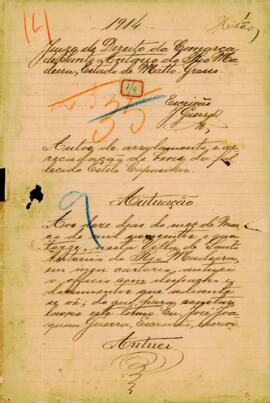 1914
Juizo de Direito da Comarca
de Santo Antonio do Rio Ma-
deira, Estado de Matto-Grosso.
Escrivão
Guerra
Autos de arrolamento, e ar-
recadação de bens do fal-
lecido Estelo
Autuação
Aos doze dias do mez de Mar-
ço de mil novecentos e qua-
torze, nesta Villa de Santo
Antonio do Rio Madeira,
em meu cartorio, autuei
o officio com despacho e
documentos que adiante
se vê; do que, para constar
lavro este termo. Eu, José Joa-
quim Guerra, Escrivão, escrevi.
Autuei